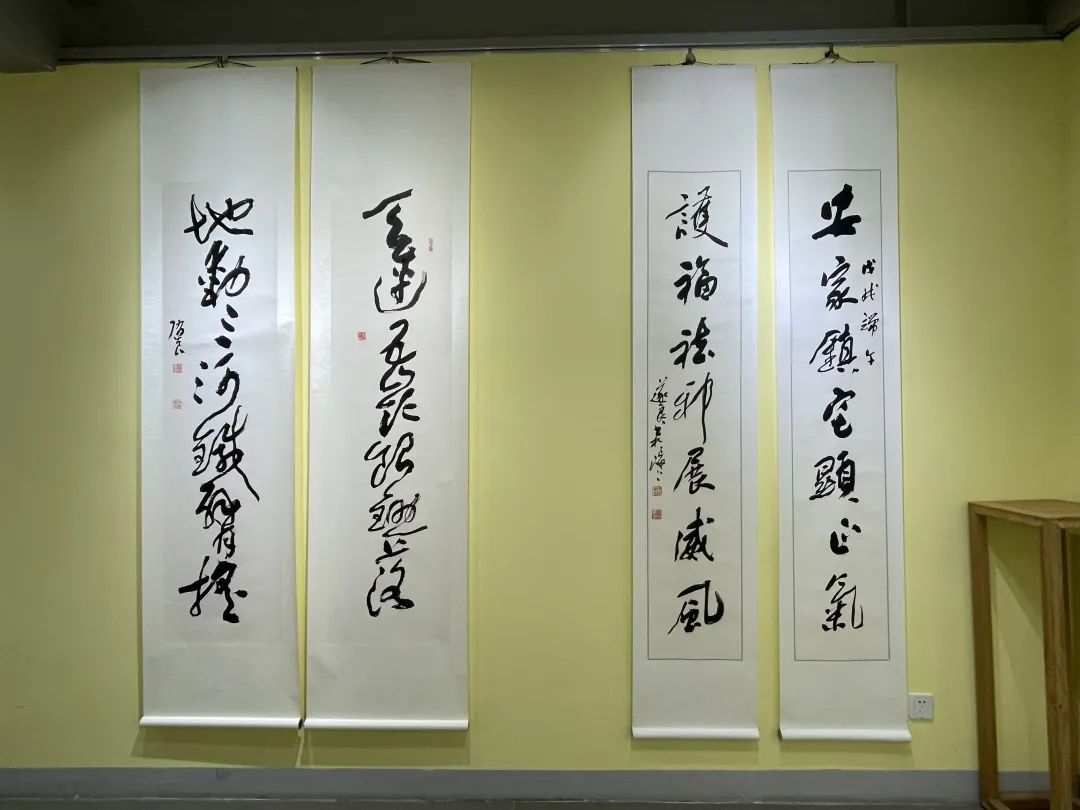 安家鎮宅顯正氣
戊戌端午
護福祛邪展威風
遂良
天連五嶺銀鋤落
地動三河鐵臂搖